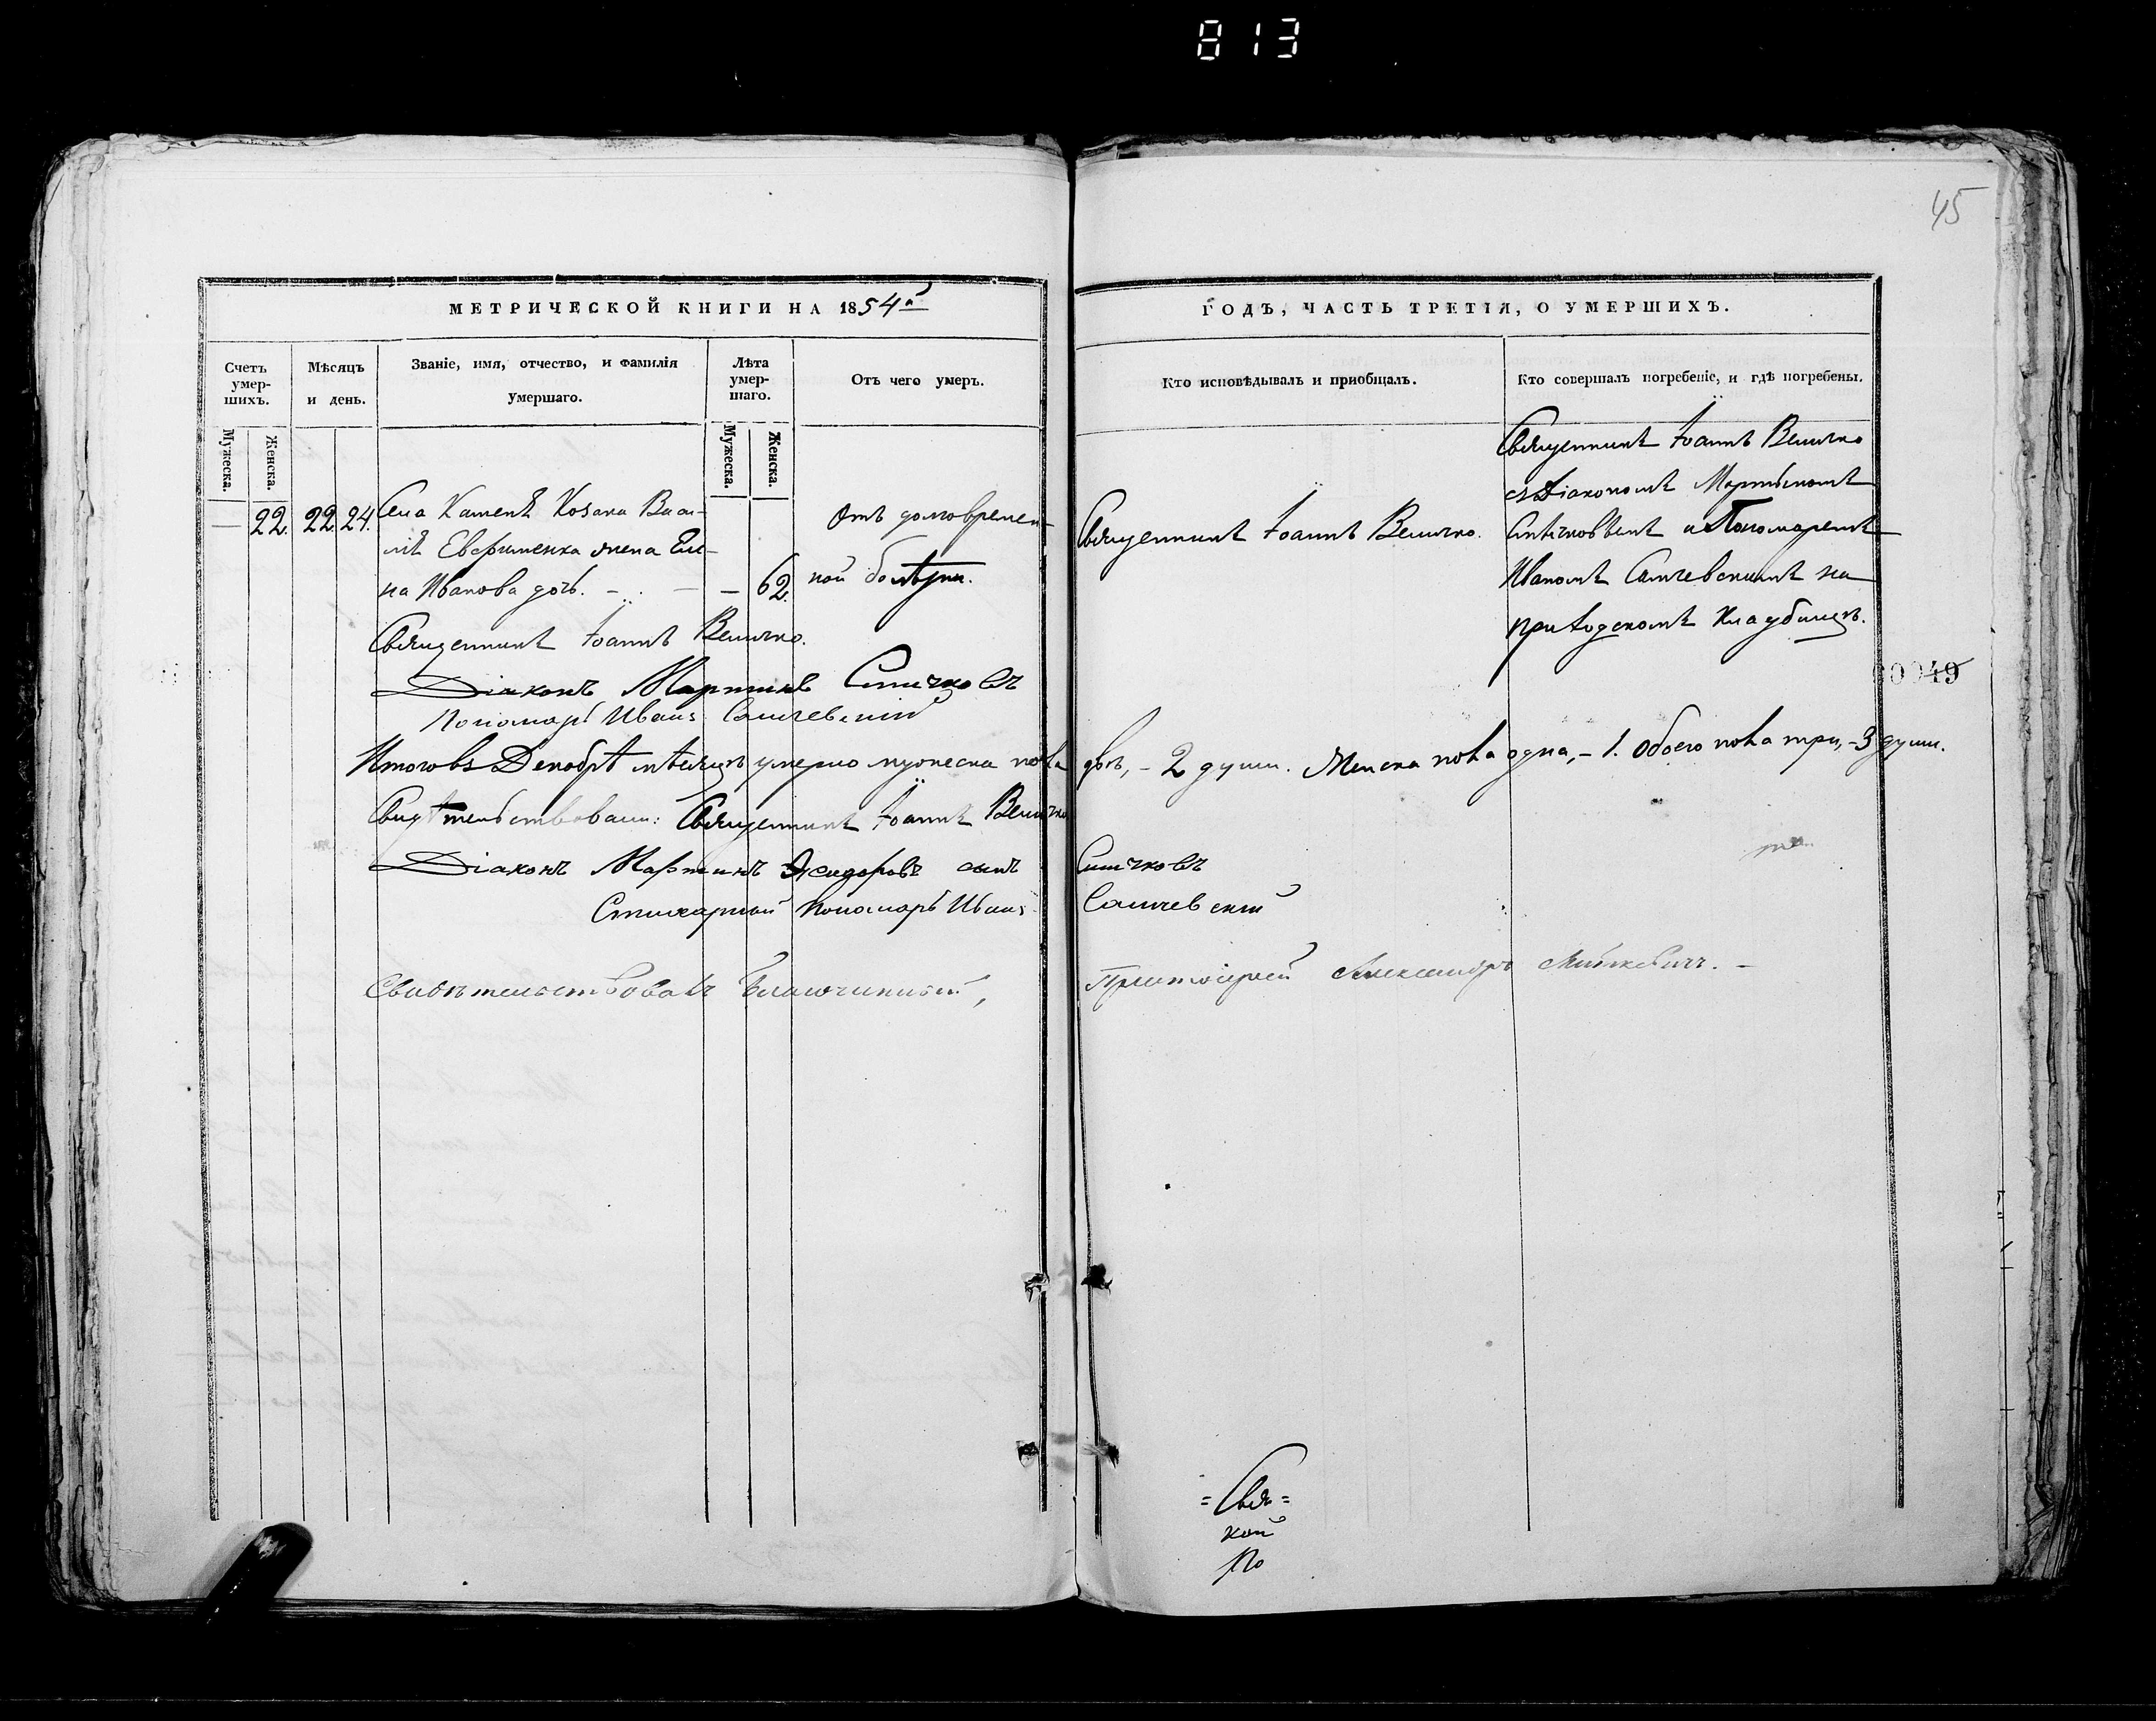 813
45
МЕТРИЧЕСКОЙ КНИГИ НА 1854й
ГОДЪ, ЧАСТЬ ТРЕТІЯ, О УМЕРШИХЪ.
Счетъ умер-шихъ.
Мѣсяцъ и день.
Званіе, имя, отчество, и фамилія умершаго.
Лѣта умер-шаго.
Отъ чего умеръ.
Кто исповѣдывалъ и пріобщалъ.
Кто совершалъ погребеніе, и гдѣ погребены.
Мужеска.
Женска.
Мужеска.
Женска.
— 22. 22. 24.
Села Каменѣ Козака Васи-
лія Евфименка жена Еле-
на Иванова дочь. — — 62.
Отъ долговремен-
ной болѣзни.
Священникъ Іоаннъ Величко.
Священникъ Іоаннъ Величко
съ Діакономъ Мартиномъ
Ситчковымъ и Пономаремъ
Иваномъ Самчевскимъ на
приходскомъ Кладбищѣ.
Священникъ Іоаннъ Величко.
Діаконъ Мартинъ Ситчковъ
Пономарь Иванъ Самчевскій
00049
Итого въ Декабрѣ мѣсяцѣ умерло мужеска пола двѣ, – 2 души. Женска пола одна, – 1. Обоего пола три, – 3 души.
Свидѣтельствовали: Священникъ Іоаннъ Величко
Діаконъ Мартинъ Исидоровъ сынъ Ситчковъ
Стихарный Пономарь Иванъ Самчевскій
Свидѣтельствовалъ Благочинный, Протоіерей Александръ –
= Свя =
кой
По